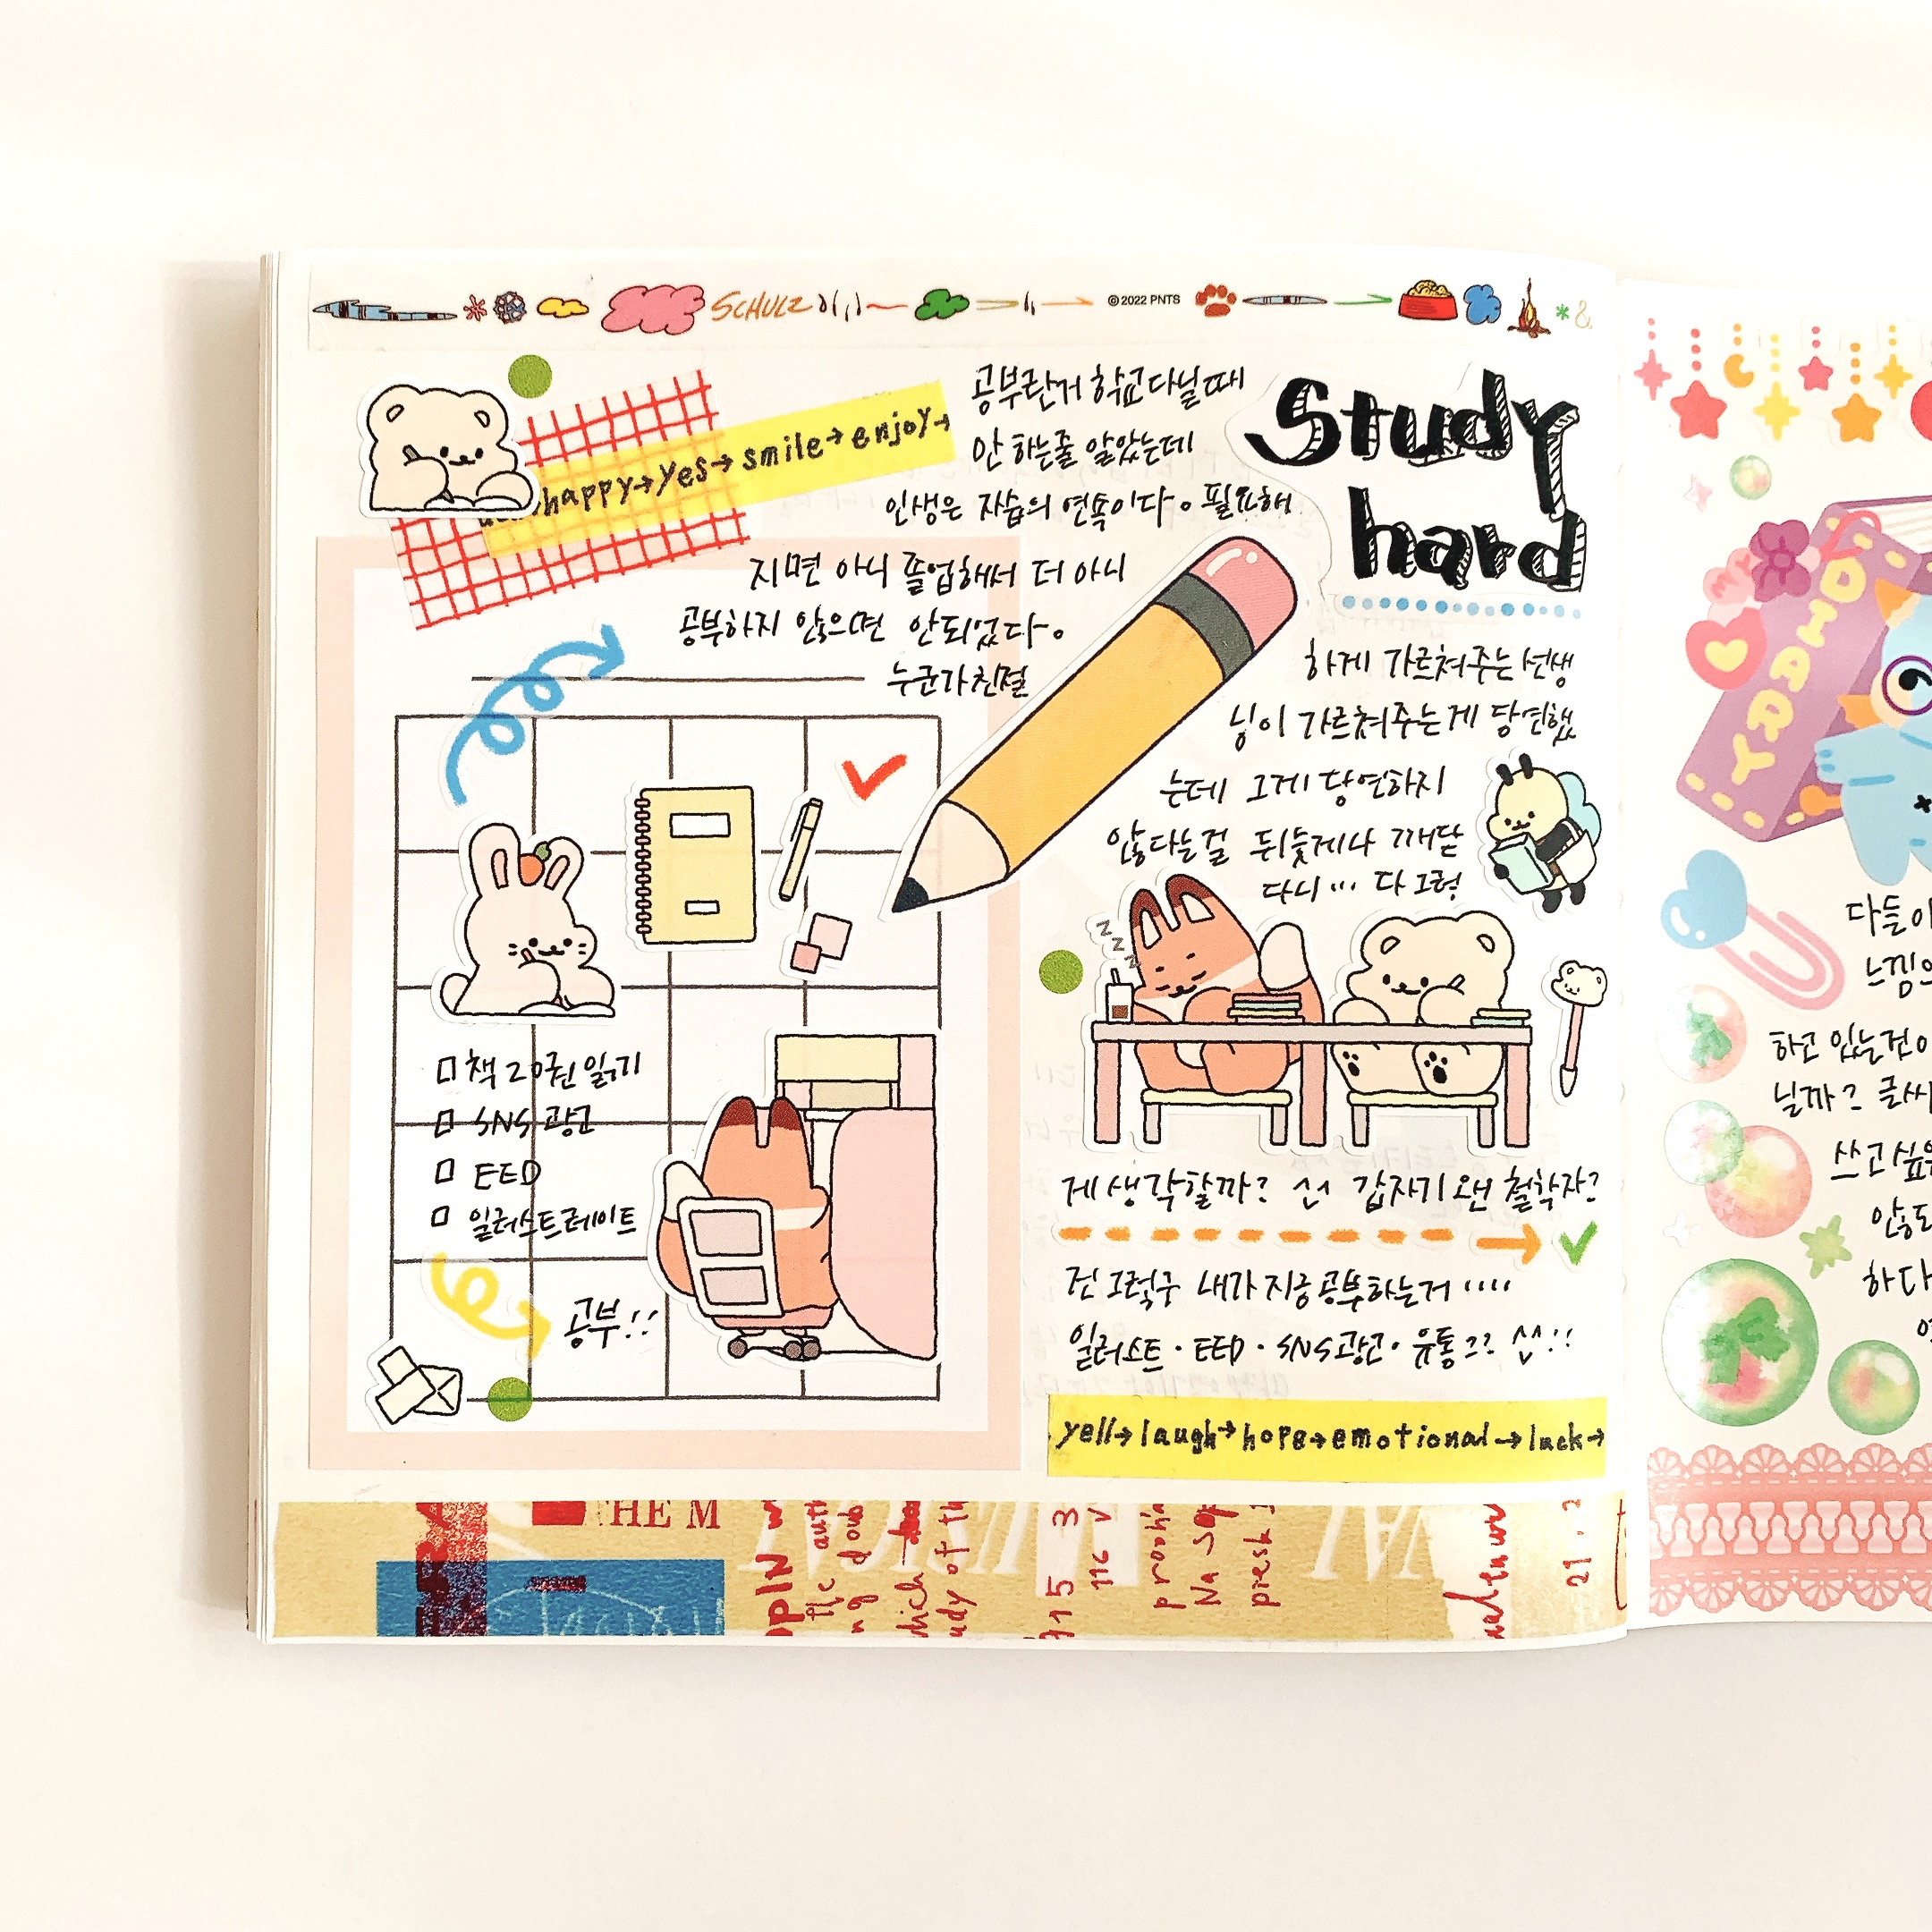 SCHULZ
© 2022 PNTS
happy→yes→smile→enjoy→
Study
hard
공부란거 학교다닐때
안 하는줄 알았는데
인생은 자습의 연속이다。필요해
지면 아니 졸업해서 더 아니
공부하지 않으면 안되었다。
누군가친절
하게 가르쳐주는선생
님이 가르쳐주는게 당연했
는데 그게 당연하지
않다는걸 뒤늦게나 깨닫
다니… 다 그렇
z z z
게 생각할까? 갑자기 왠 철학자?
□ 책 20권 읽기
□ SNS 광고
□ EED
□ 일러스트레이트
공부!!
건 그렇구 내가지금공부하는거 ····
일러스트·EED·SNS광고·유통??
yell→laugh→hope→emotional→luck→
THE M
DIARY
다들이
느낌의
하고 있는건이
닐까? 글씨
쓰고싶은
않되
하다